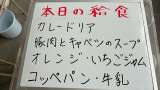 本日の給食
カレードリア
豚肉とキャベツのスープ
オレンジ・いちごジャム
コッペパン・牛乳